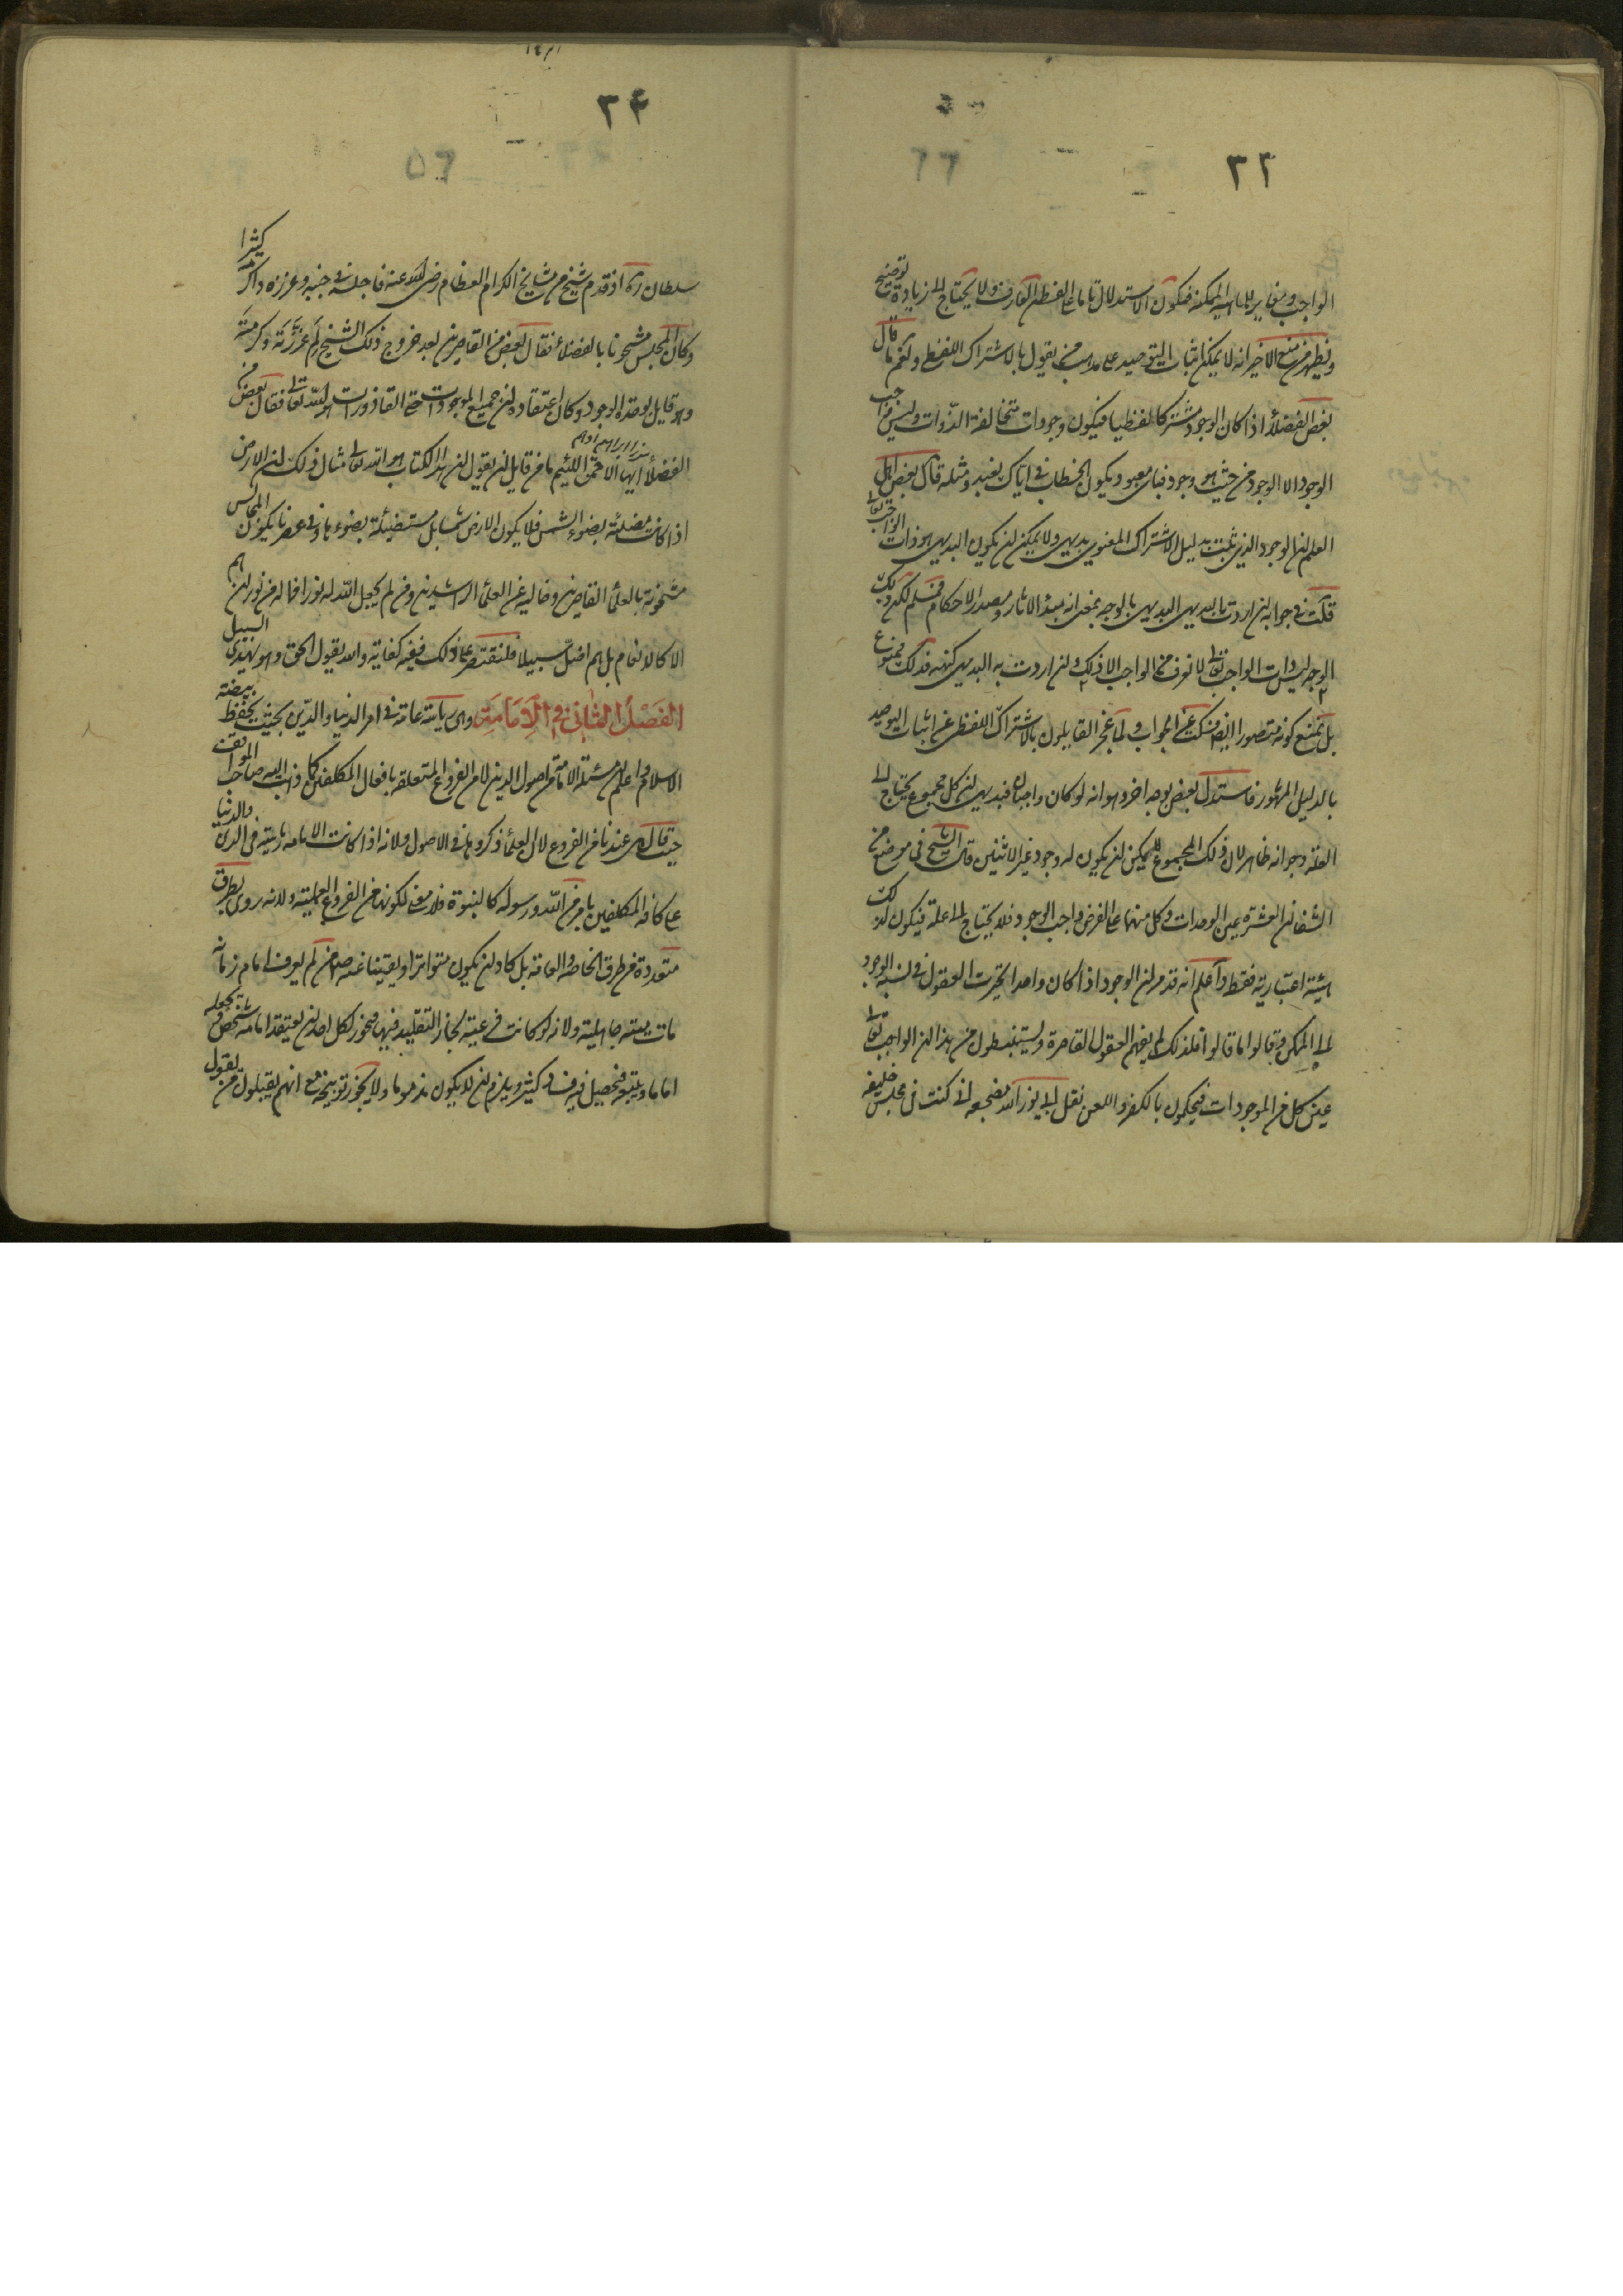 ٣٢
الواجب ومغاير للماهية الممكنة فيكون الاستدلال تاما على الفطن العارف ولا يحتاج الى زيادة توضيح
ويظهر من منع الاخير انه لا يمكن اثبات التوحيد على مذهب من يقول بالاشتراك اللفظي ولنعم ما قال
بعض الفضلاء اذا كان الوجود مشتركا لفظيا فيكون وجودات متخالفة الذوات وليس من واجب
الوجود الا الوجود من حيث هو وجود فباى معبود يكون الخطاب في اياك نعبد ومثله قال بعض اهل
العلم ان الوجود الذي ثبت بدليل الاشتراك المعنوي بديهي ولا يمكن ان يكون البديهي هو ذات الواجب تعالى
قلت في جوابه ان اردت بالبديهي البديهي بالوجه بمعنى انه مبدء الاثار ومصدر الاحكام فمسلم لكن ذلك
الوجه ليس ذات الواجب تعالى لا نعرف من الواجب الا ذلك وان اردت به البديهي بكنهه فذلك ممنوع
بل يمتنع كونه متصورا ايضا فسكت عن الجواب ولما عجز القايلون بالاشتراك اللفظي عن اثبات التوحيد
بالدليل المشهور فاستدل بعض بوجه اخر وهو انه لو كان واجبان فبديهي ان كل مجموع يحتاج الى
العلة وجوابه ظاهر لان ذلك المجموع لا يمكن ان يكون له وجود غير الاثنين قال الشيخ في موضع من
الشفا ان العشرة عين الوحدات وكل منهما على الفرض واجب الوجود فلا يحتاج الى علة فيكون لذلك
هيئة اعتبارية فقط واعلم انه قد مر ان الوجود اذا كان واحدا تحيرت العقول في نسبة الوجود
الى الممكن فقالوا ما قالوا فلذلك لم يفهم العقول القاصرة ويستنبطون من هذا ان الواجب تعالى
عين كل من الموجودات فيحكمون بالكفر واللعن نقل ابي نور الله مضجعه اني كنت في مجلس خليفه
٣٤
سلطان ره اذ قدم شيخ من مشايخ الكرام العظام رضي الله عنه فاجلسه في جنبه وعززه واكرمه كثيرا
وكان المجلس مشحونا بالفضلاء فقال بعض من القاصرين بعد خروج ذلك الشيخ لم عززته وكرمته
وهو قايل بوحدة الوجود وكان اعتقاده ان جميع الموجودات حتى القاذورات هو الله تعالى فقال بعض من
ميرزا ابراهيم ادهم
الفضلاء ايها الاحمق اللئيم ما من قايل ان يقول ان هذا الكتاب هو الله تعالى مثال ذلك ان الارض
اذا كانت مضيئة بضوء الشمس فلا يكون الارض شمسا بل مستضيئة بضوءها وفي عصرنا يكون المجالس
مشحونة بالعلماء القاصرين وخالية عن العلماء الراشدين ومن لم يجعل الله له نورا فما له من نور ان هم
الا كالانعام بل هم اضل سبيلا فلنقتصر على ذلك ففيه كفاية والله يقول الحق وهو يهدي السبيل
الفصل الثاني في الامامة وهي رياسة عامة في امر الدنيا والدين بحيث يحفظ بيضة
الاسلام واعلم ان مسئلة الامامة من اصول الدين لا من الفروع المتعلقة بافعال المكلفين كما ذهب اليه صاحب المواقف
حيث قال وهي عندنا من الفروع لان العلماء ذكروها في الاصول ولانه اذا كانت الامامة رياسة في الدين والدنيا
على كافة المكلفين بامر من الله ورسوله كالنبوة فلا معنى لكونها من الفروع العملية ولانه روى بطرق
متعددة من طرق الخاصة والعامة بل كاد ان يكون متواترا او يقينا عنه ص من لم يعرف امام زمانه
مات ميتة جاهلية ولانه لو كانت فرعية لجاز التقليد فيها فيجوز لكل احد ان يعتقد امامة شخص ويجعله
اماما ويتبعه فيحصل فيه فساد كثير ويلزم ان لا يكون مذموما ولا يجوز توبيخه مع انهم يقبلون من يقول